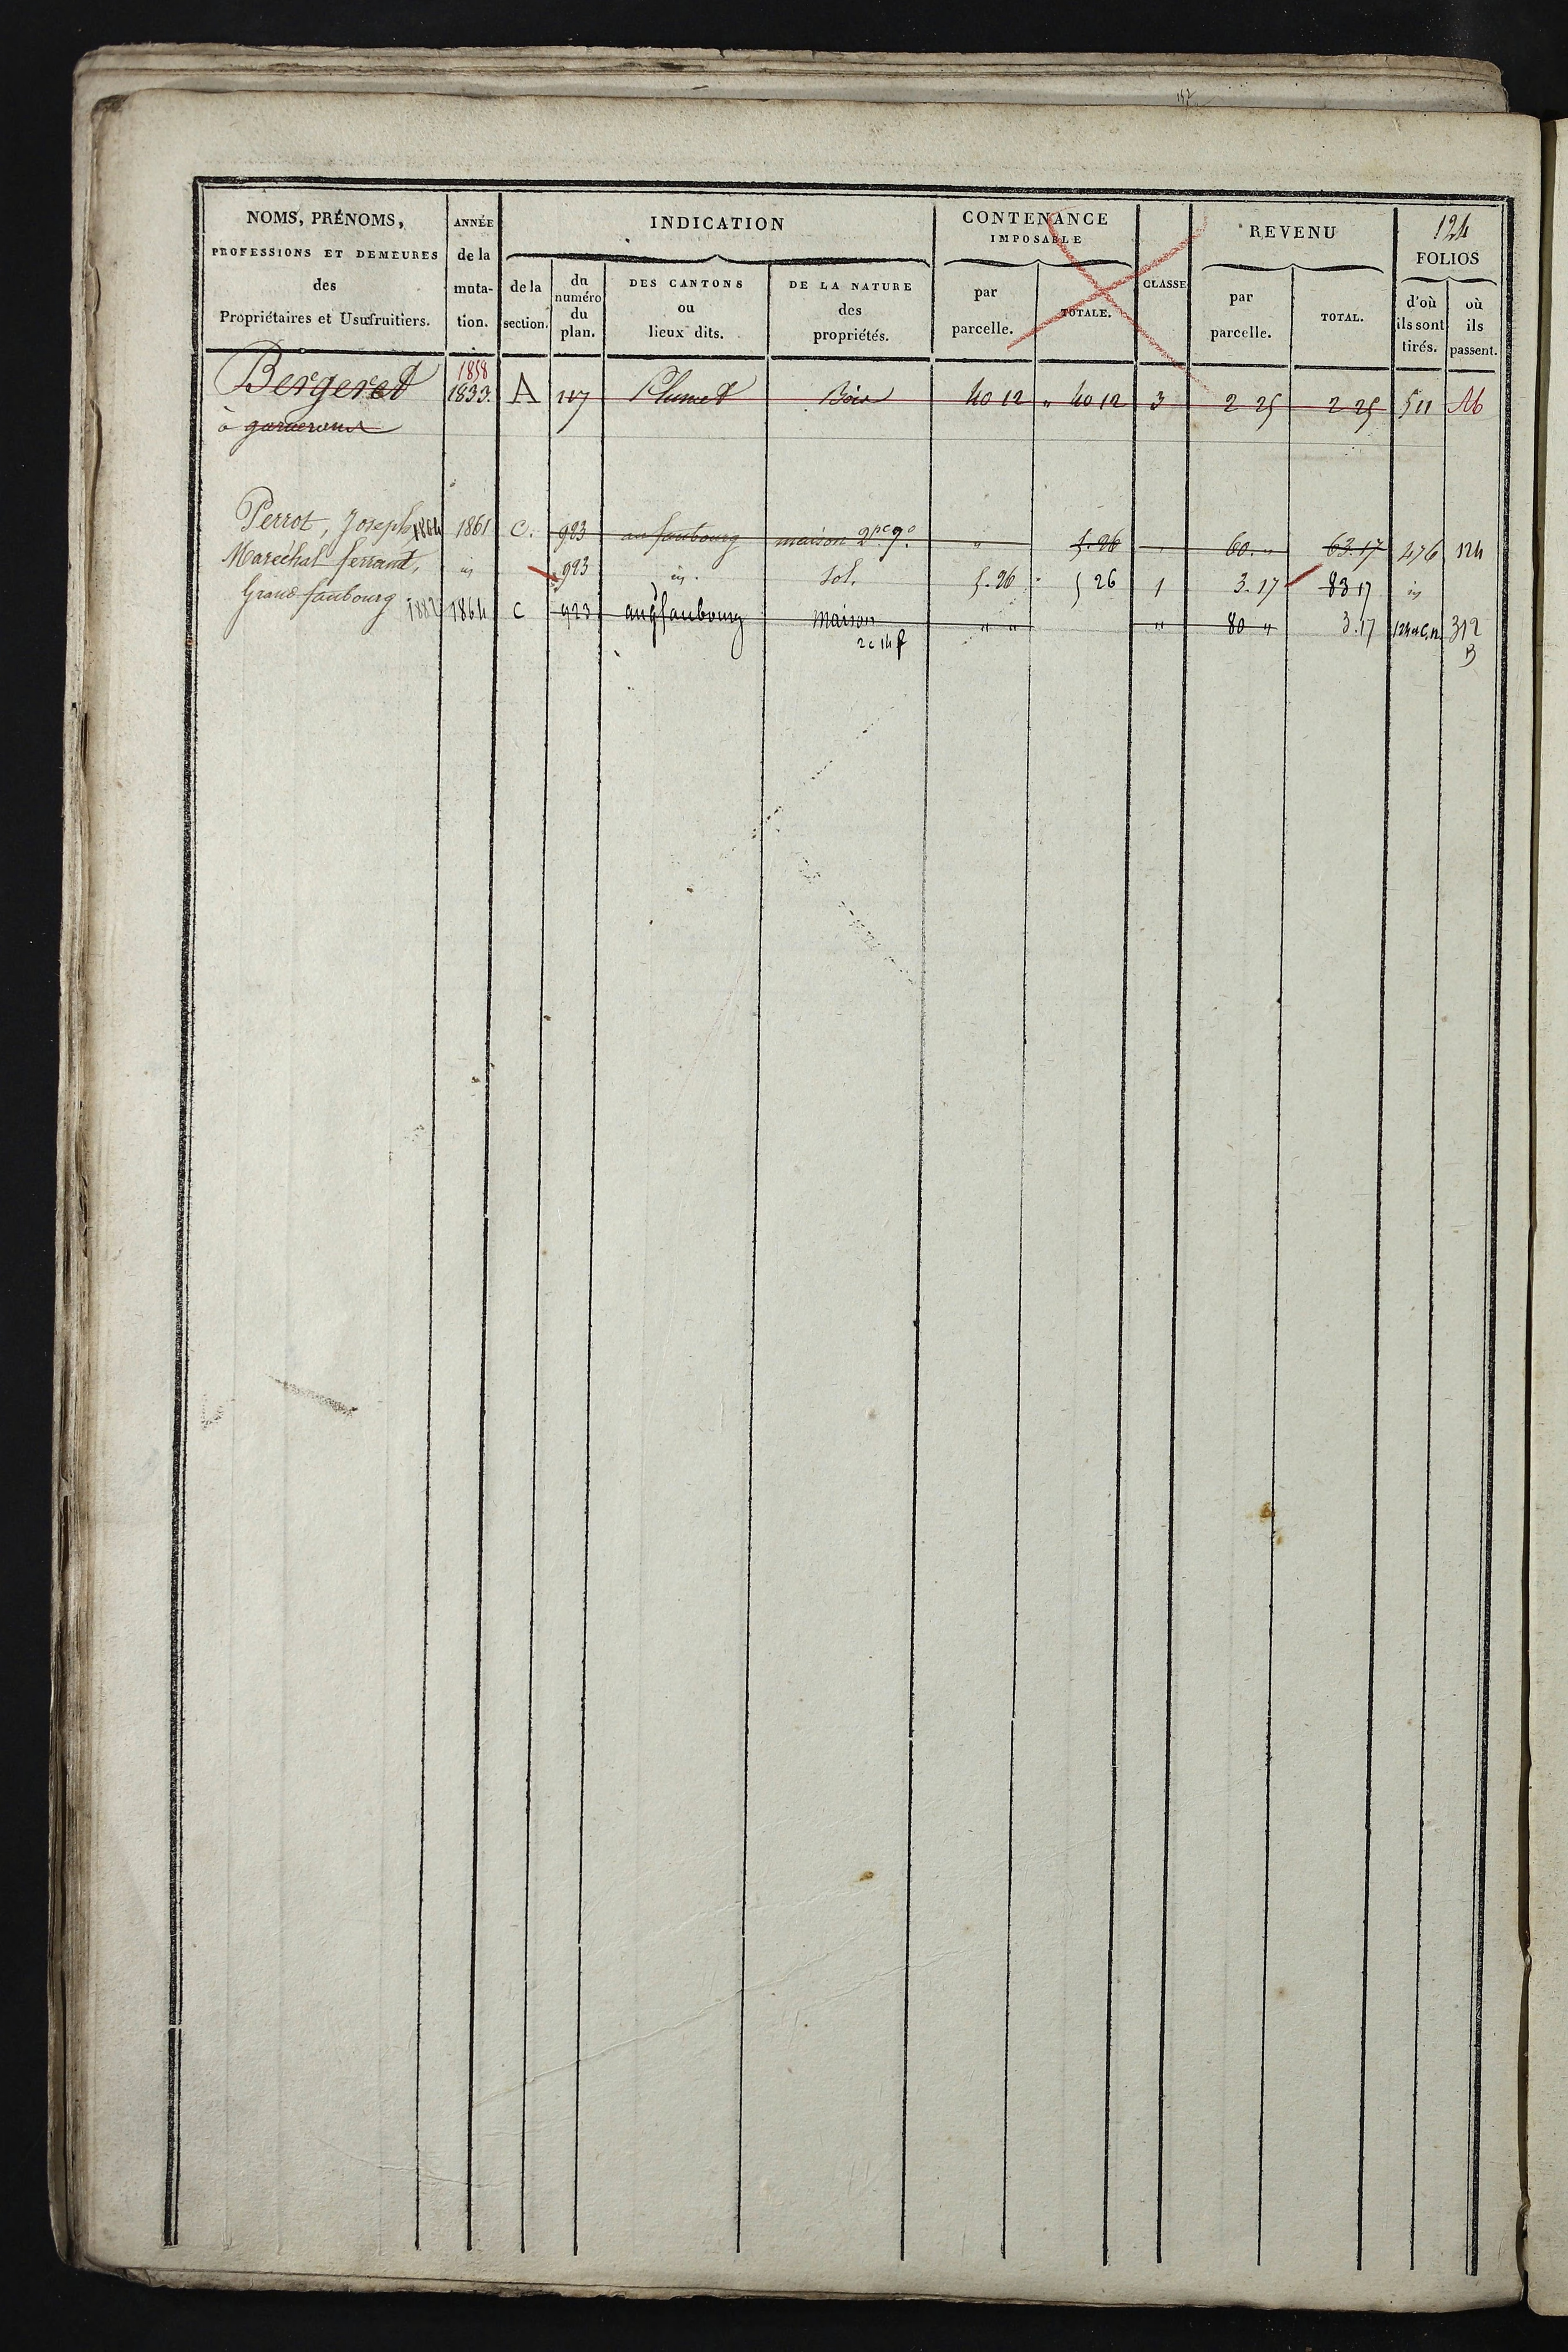 157
NOMS, PRÉNOMS,
PROFESSIONS ET DEMEURES
des
Propriétaires et Usufruitiers.
ANNÉE
de la
muta-
tion.
INDICATION
de la
section.
du
numéro
du
plan.
DES CANTONS
ou
lieux dits.
DE LA NATURE
des
propriétés.
CONTENANCE
IMPOSABLE
par
parcelle.
TOTALE.
CLASSE
REVENU
par
parcelle.
TOTAL.
124
FOLIOS
d'où
ils sont
tirés.
où
ils
passent.
1858
Bergeret 1833. A 117 Plumet Bois 40 12 " 40 12 3 2 25 2 25 511
à
Perrot, Joseph, 1864 1861 C. 923 au faubourg maison 2pe 9o " 5.26 60. " 63.17 476 124
Maréchal ferrant, id 923 id. Sol. 5.26 5 26 1 3.17 83 17 id
Grand faubourg 1882 1864 C 923 au gd faubourg maison " " " 80 " 3.17 312
2c 14 f B